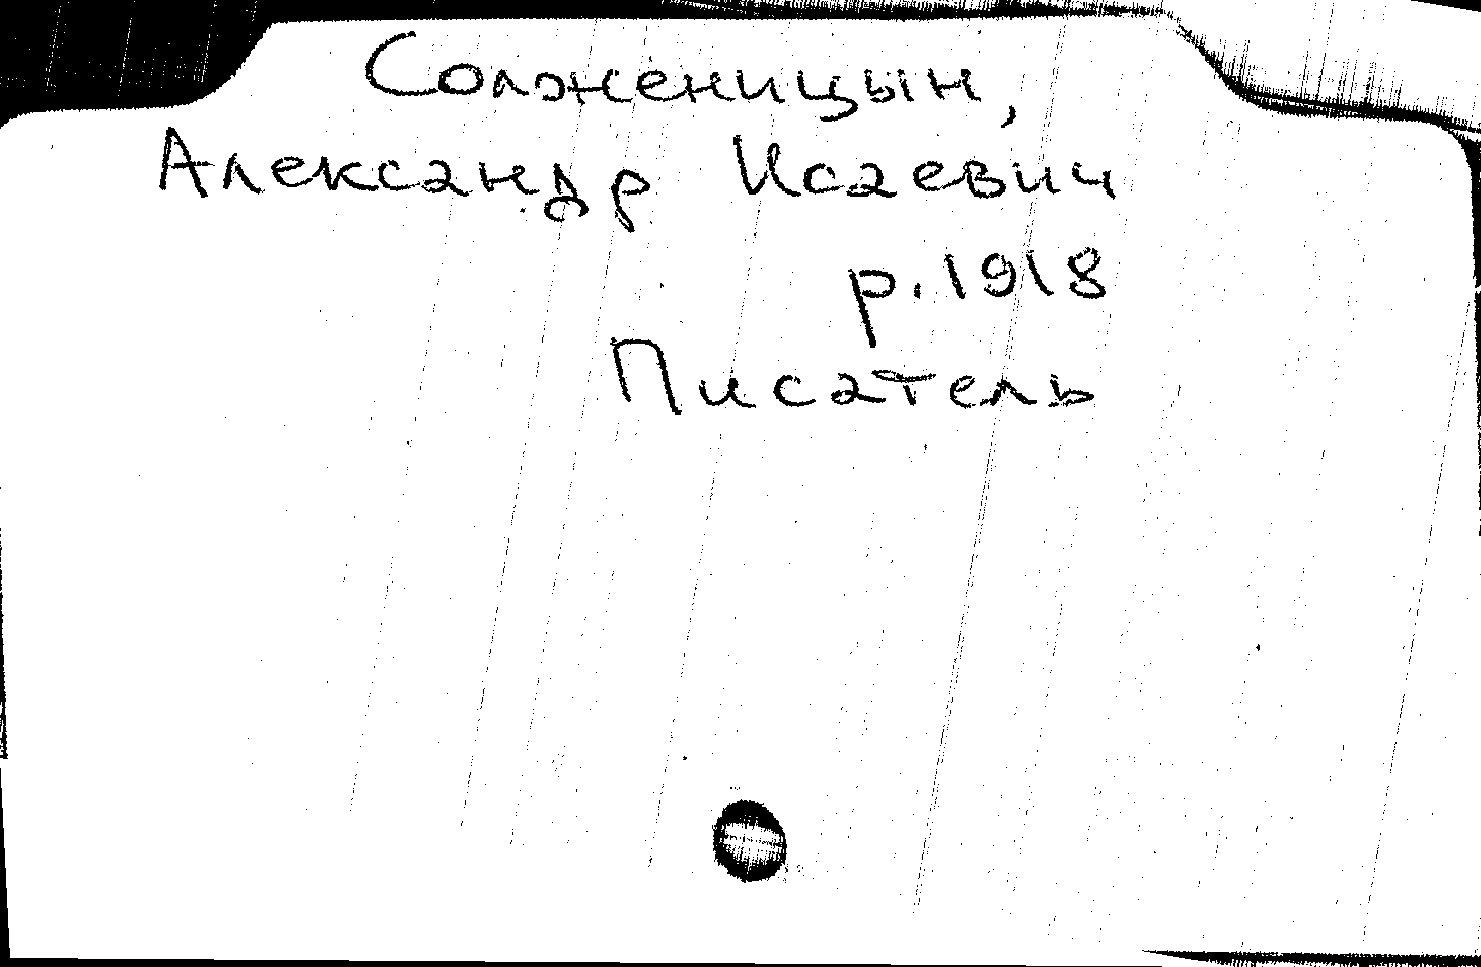 Солженицын,
Александр Исаевич
р. 1918
Писатель